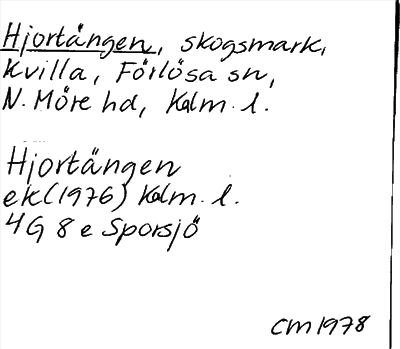 Hjortängen, skogsmark,
Kvilla, Förlösa sn,
N. Möre hd, Kalm. l.
Hjortängen
ek (1976) Kalm. l.
4G 8 e Sporsjö
CM 1978